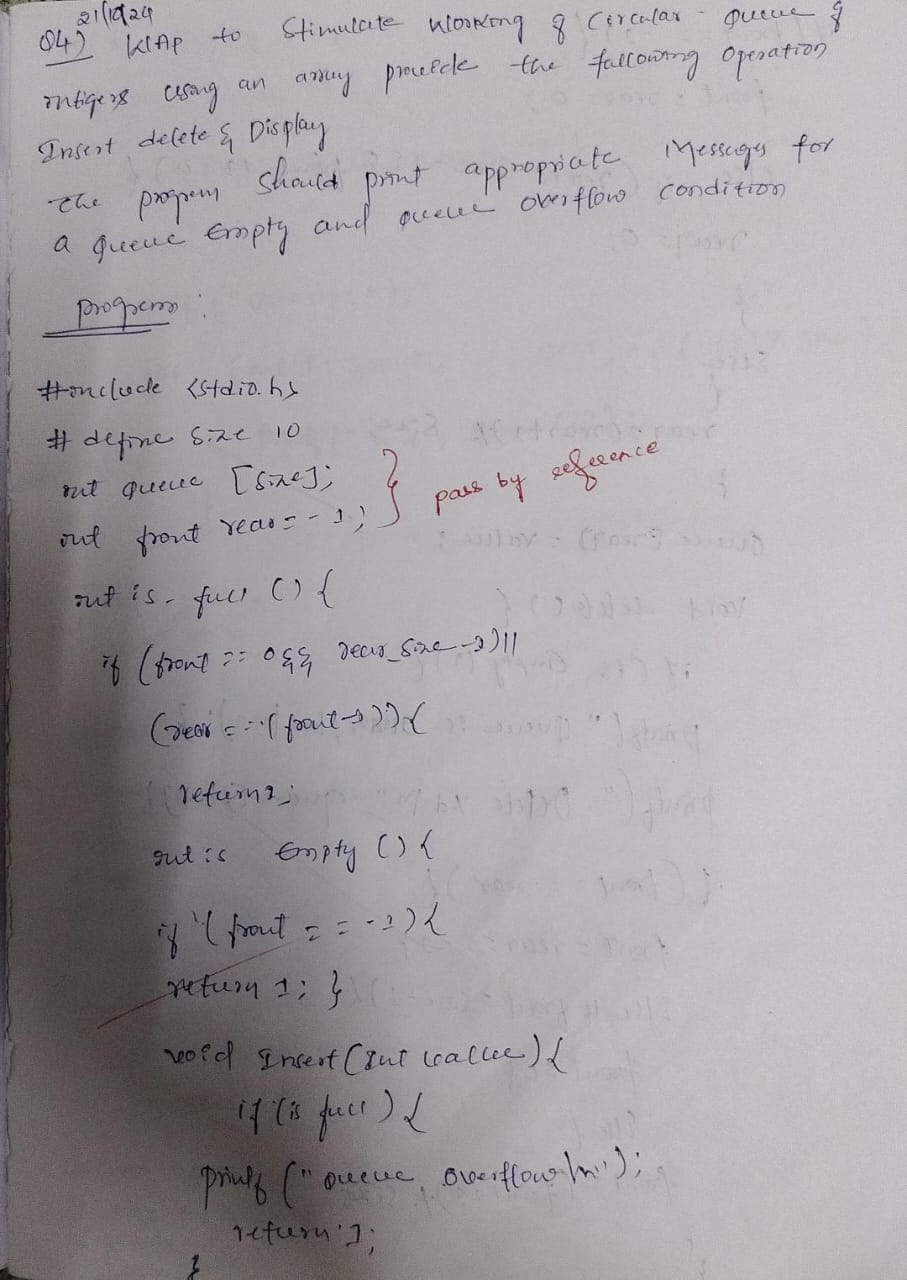 21/10/24
Q4) WAP to Stimulate working of Circular - queue of
intigers using an array provide the following operation
Insert delete & Display
The program should print appropriate Messages for
a queue Empty and queue overflow condition
program :
#include <stdio.h>
# define Size 10
int queue [size];
int front rear = - 1;
pass by reference
int is- full () {
if (front == 0 && rear_size -1) ||
(rear == (front-1))) {
return 1;
int is Empty () {
if (front == -1) {
return 1; }
void Insert (Int value) {
if (is full) {
printf ("queue overflow\n");
return 1;
}